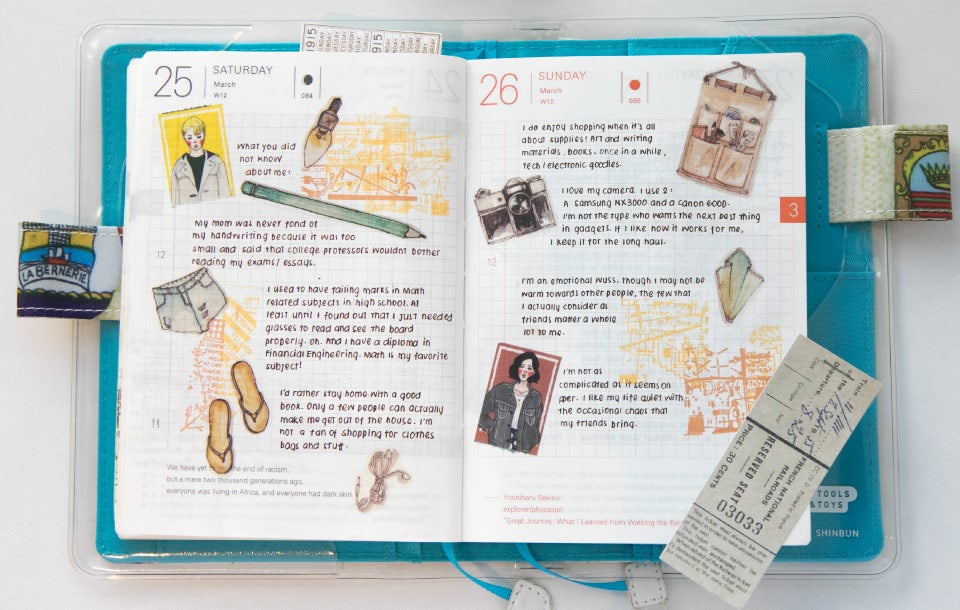 1915
1915
25
SATURDAY
March
W12
084
What you did
not know
about me:
My mom was never fond of
my handwriting because it was too
small and said that college professors wouldn't bother
reading my exams/ essays.
12
I used to have failing marks in Math
related subjects in high school. At
least until I found out that I just needed
glasses to read and see the board
properly. Oh. And I have a diploma in
Financial Engineering. Math is my favorite
subject!
I'd rather stay home with a good
book. Only a few people can actually
make me get out of the house. I'm
not a fan of shopping for clothes
bags and stuff.
We have yet the end of racism,
but a mere two thousand generations ago,
everyone was living in Africa, and everyone had dark skin.
LA BERNERIE
26
SUNDAY
March
W12
085
I do enjoy shopping when it's all
about supplies! Art and writing
materials, books. once in a while,
tech / electronic goodies.
I love my camera. I use 2:
A Samsung NX3000 and a Canon 600D.
I'm not the type who wants the next best thing
in gadgets. If I like how it works for me,
I keep it for the long haul.
3
12
I'm an emotional wuss. Though I may not be
warm towards other people, the few that
I actually consider as
friends matter a whole
lot to me.
I'm not as
complicated as it seems on
paper. I like my life quiet with
the occasional chaos that
my friends bring.
Yoshiharu Sekino
explorer/physician
"Great Journey: What I Learned from Walking the
Train
of the
Departure
FRENCH NATIONAL
RAILROADS
RESERVED SEAT
PRICE: 30 CENTS
03033
TOOLS
&TOYS
SHINBUN